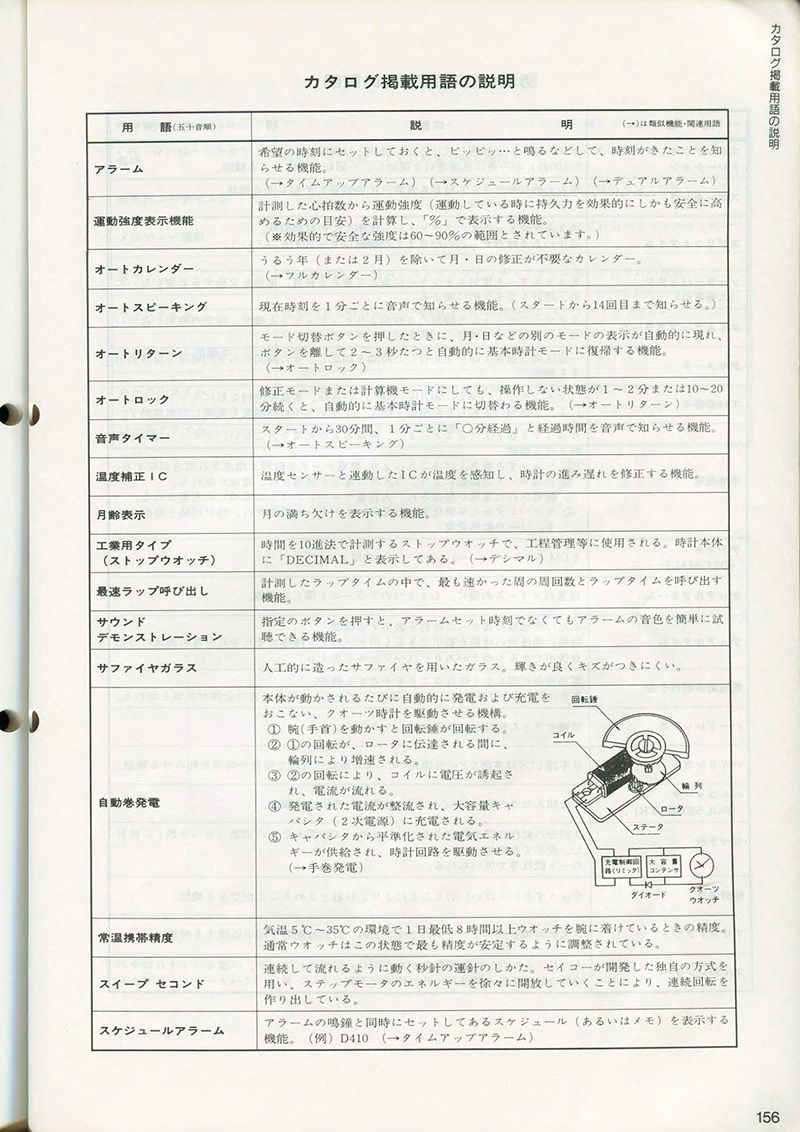 カタログ掲載用語の説明
カタログ掲載用語の説明
用　語(五十音順)
説　明　(→)は類似機能・関連用語
アラーム
希望の時刻にセットしておくと、ピッピッ…と鳴るなどして、時刻がきたことを知
らせる機能。
(→タイムアップアラーム)　(→スケジュールアラーム)　(→デュアルアラーム)
運動強度表示機能
計測した心拍数から運動強度（運動している時に持久力を効果的にしかも安全に高
めるための目安）を計算し、「%」で表示する機能。
(※効果的で安全な強度は60～90%の範囲とされています。)
オートカレンダー
うるう年（または２月）を除いて月・日の修正が不要なカレンダー。
(→フルカレンダー)
オートスピーキング
現在時刻を１分ごとに音声で知らせる機能。(スタートから14回目まで知らせる。)
オートリターン
モード切替ボタンを押したときに、月・日などの別のモードの表示が自動的に現れ、
ボタンを離して２～３秒たつと自動的に基本時計モードに復帰する機能。
(→オートロック)
オートロック
修正モードまたは計算機モードにしても、操作しない状態が１～２分または10～20
分続くと、自動的に基本時計モードに切替わる機能。(→オートリターン)
音声タイマー
スタートから30分間、１分ごとに「○分経過」と経過時間を音声で知らせる機能。
(→オートスピーキング)
温度補正ＩＣ
温度センサーと連動したＩＣが温度を感知し、時計の進み遅れを修正する機能。
月齢表示
月の満ち欠けを表示する機能。
工業用タイプ
(ストップウオッチ)
時間を10進法で計測するストップウオッチで、工程管理等に使用される。時計本体
に「DECIMAL」と表示してある。(→デシマル)
最速ラップ呼び出し
計測したラップタイムの中で、最も速かった周の周回数とラップタイムを呼び出す
機能。
サウンド
デモンストレーション
指定のボタンを押すと、アラームセット時刻でなくてもアラームの音色を簡単に試
聴できる機能。
サファイヤガラス
人工的に造ったサファイヤを用いたガラス。輝きが良くキズがつきにくい。
自動巻発電
本体が動かされるたびに自動的に発電および充電を
おこない、クオーツ時計を駆動させる機構。
① 腕(手首)を動かすと回転錘が回転する。
② ①の回転が、ロータに伝達される間に、
輪列により増速される。
③ ②の回転により、コイルに電圧が誘起さ
れ、電流が流れる。
④ 発電された電流が整流され、大容量キャ
パシタ（２次電源）に充電される。
⑤ キャパシタから平準化された電気エネル
ギーが供給され、時計回路を駆動させる。
(→手巻発電)
回転錘
コイル
輪列
ロータ
ステータ
充電制御回
路(リミッタ)
大容量
コンデンサ
ダイオード
クオーツ
ウオッチ
常温携帯精度
気温５℃～35℃の環境で１日最低８時間以上ウオッチを腕に着けているときの精度。
通常ウオッチはこの状態で最も精度が安定するように調整されている。
スイープ セコンド
連続して流れるように動く秒針の運針のしかた。セイコーが開発した独自の方式を
用い、ステップモータのエネルギーを徐々に開放していくことにより、連続回転を
作り出している。
スケジュールアラーム
アラームの鳴鐘と同時にセットしてあるスケジュール（あるいはメモ）を表示する
機能。(例) D410　(→タイムアップアラーム)
156